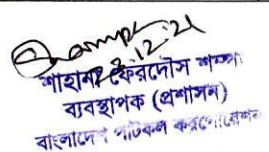 ২.12.21
শাহানা ফেরদৌস শম্পা
ব্যবস্থাপক (প্রশাসন)
বাংলাদেশ পাটকল করপোরেশন